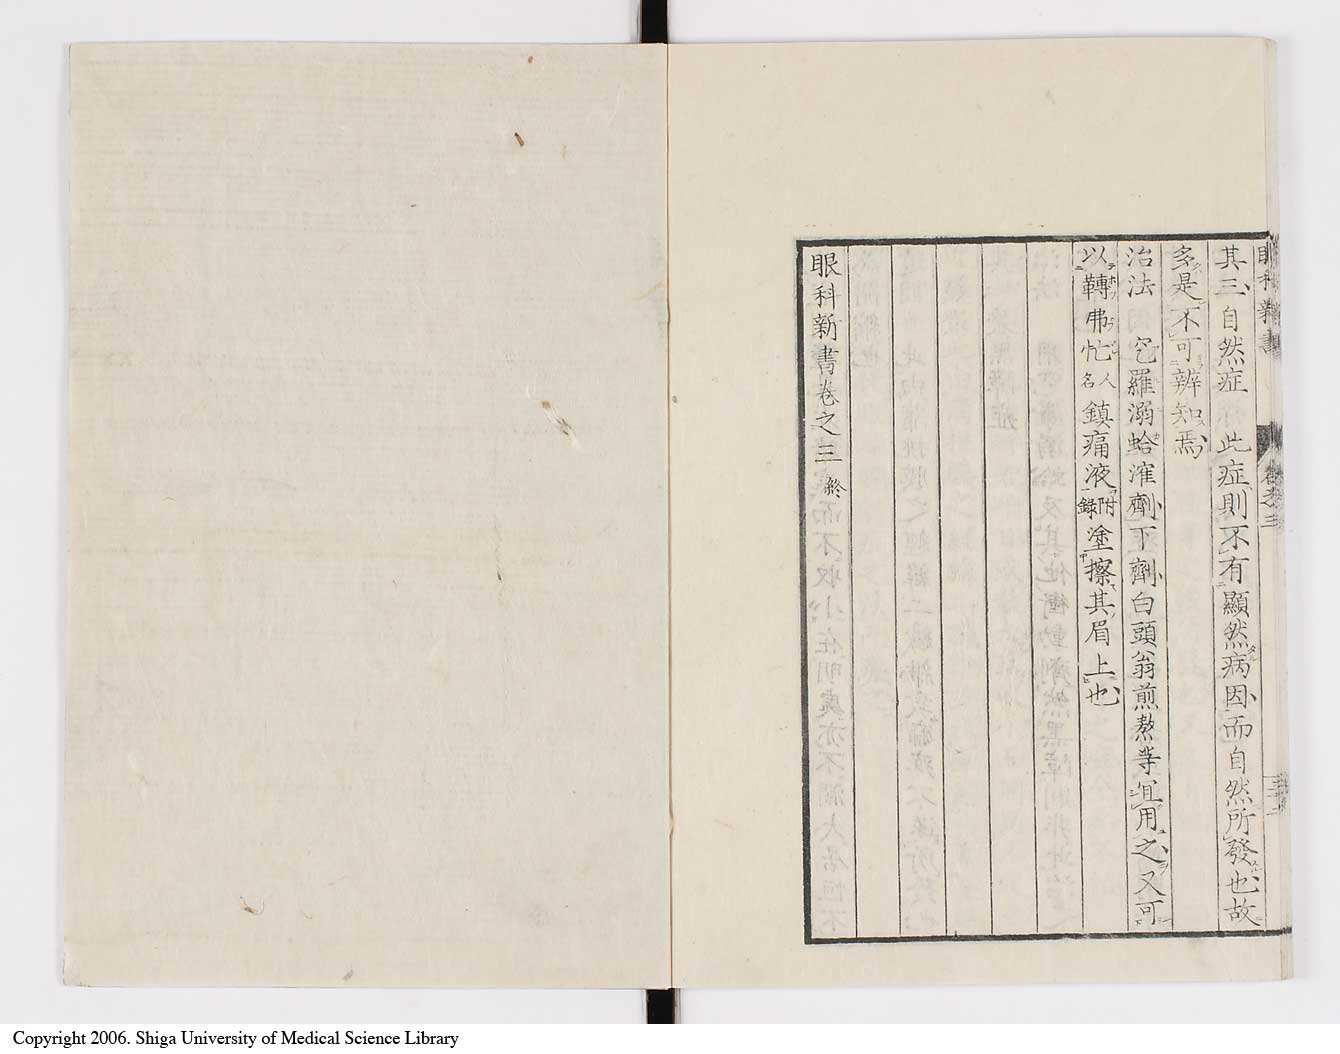 眼科新書 卷之三
其三自然症 此症則不有顯然病因而自然所發也故
多是不可辨知焉
治法 㐶羅溺蛤漼劑下劑白頭翁煎熬等宜用之又可
以轉弗忙人名鎮痛液附錄塗擦其眉上也
眼科新書卷之三終
Copyright 2006. Shiga University of Medical Science Library